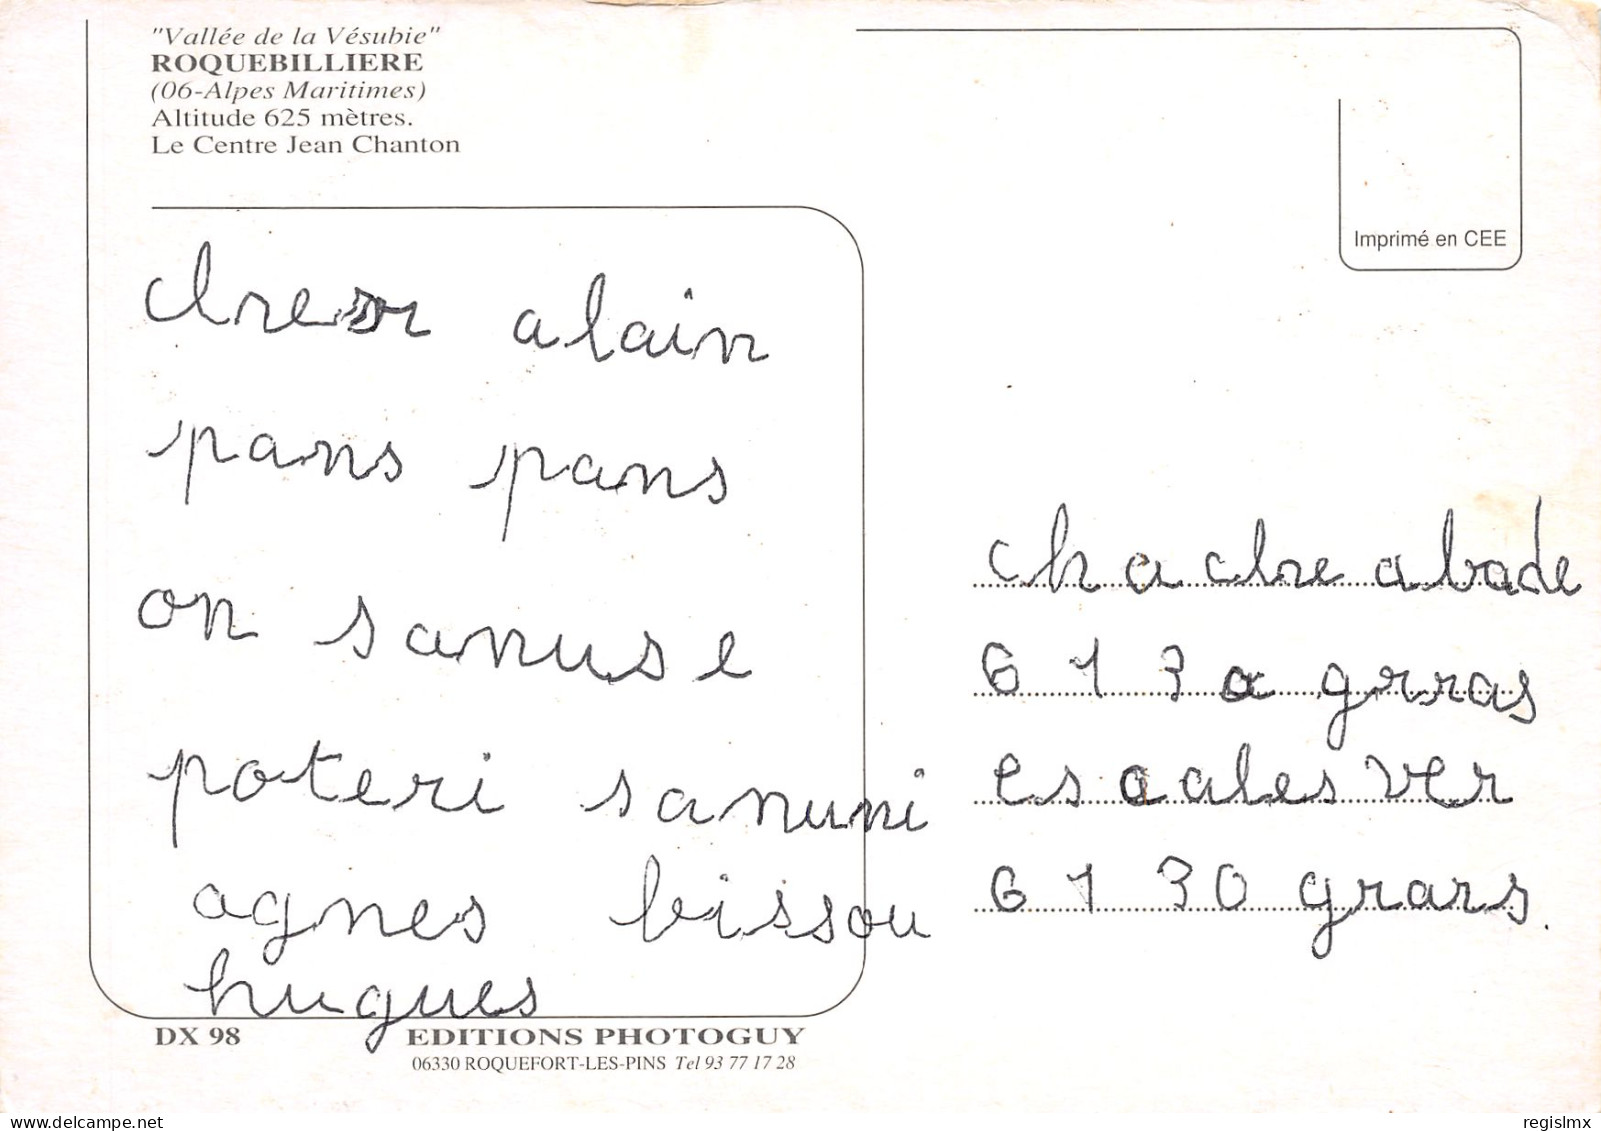 "Vallée de la Vésubie"
ROQUEBILLIERE
(06-Alpes Maritimes)
Altitude 625 mètres.
Le Centre Jean Chanton
Imprimé en CEE
alain
pans pans
on sanuse
poteri sanuni
agnes bissou
hugues
cha clre abade
6130 grras
es cales ver
6130 grars.
DX 98 EDITIONS PHOTOGUY
06330 ROQUEFORT-LES-PINS Tel 93 77 17 28
regislmx